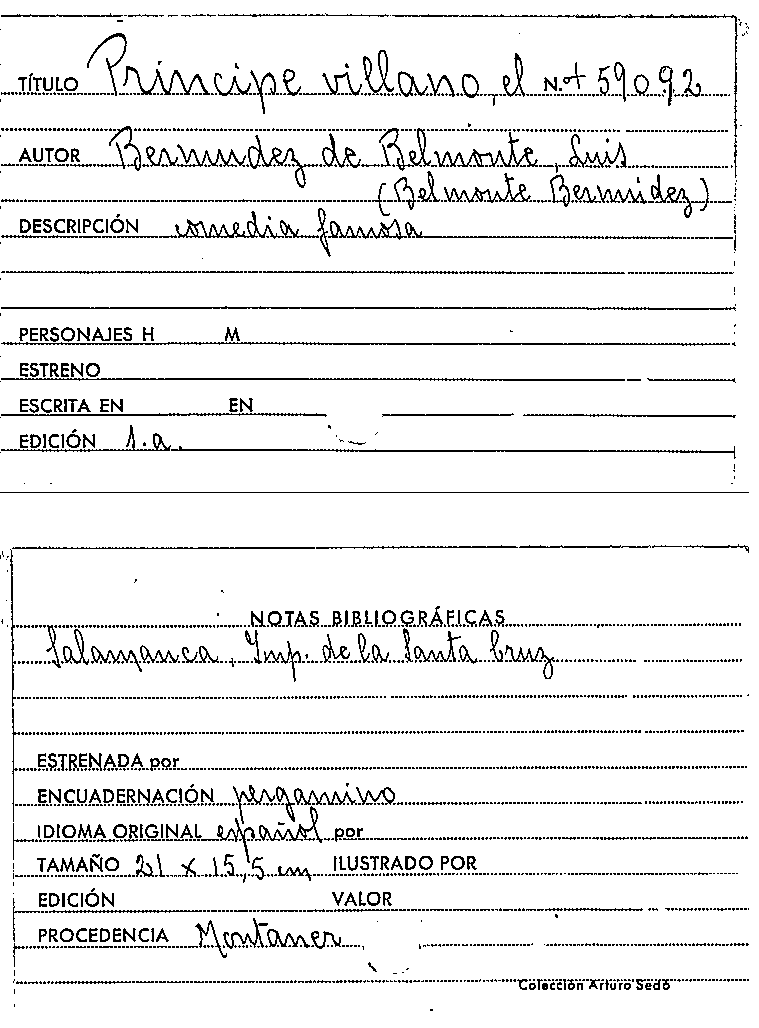 TÍTULO Príncipe villano, el N.º 59092
AUTOR Bermudez de Belmonte, Luis
(Belmonte Bermúdez)
DESCRIPCIÓN comedia famosa
PERSONAJES H M
ESTRENO
ESCRITA EN EN
EDICIÓN s.a.
NOTAS BIBLIOGRÁFICAS
Salamanca, Imp. de la Santa Cruz
ESTRENADA por
ENCUADERNACIÓN pergamino
IDIOMA ORIGINAL español por
TAMAÑO 21 x 15,5 cm ILUSTRADO POR
EDICIÓN VALOR
PROCEDENCIA Montaner
Colección Arturo Sedó